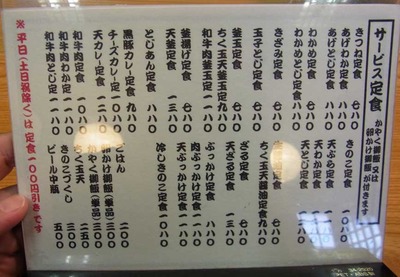 サービス定食
かやく御飯 又は
卵かけ御飯 が付きます
きつね定食 七八〇
あげわか定食 八八〇
あげとじ定食 八八〇
わかめ定食 七八〇
わかとじ定食 八八〇
きざみ定食 七八〇
玉子とじ定食 七八〇
釜玉定食 七八〇
ちく玉天釜玉定食 九八〇
和牛肉釜玉定食
天釜定食 一三八〇
釜揚げ定食 七八〇
とじあん定食 八八〇
黒豚カレー定食 九八〇
チーズカレー定食
天カレー定食
和牛肉定食 一〇八〇
和牛肉わか定食
和牛肉とじ定食
きのこ定食 一〇八〇
天ぷら定食
天わか定食
天とじ定食
ちく玉天醤油定食 九八〇
ざる定食 七八〇
天ざる定食 一三八〇
ぶっかけ定食
肉ぶっかけ定食
天ぶっかけ定食
冷しきのこ定食
ごはん 二〇〇
卵かけ御飯(単品) 三〇〇
かやく御飯(単品) 三〇〇
ちく玉天 三〇〇
きのこづくし 五〇〇
ビール中瓶 五〇〇
※平日(土日祝除く)は定食一〇〇円引きです